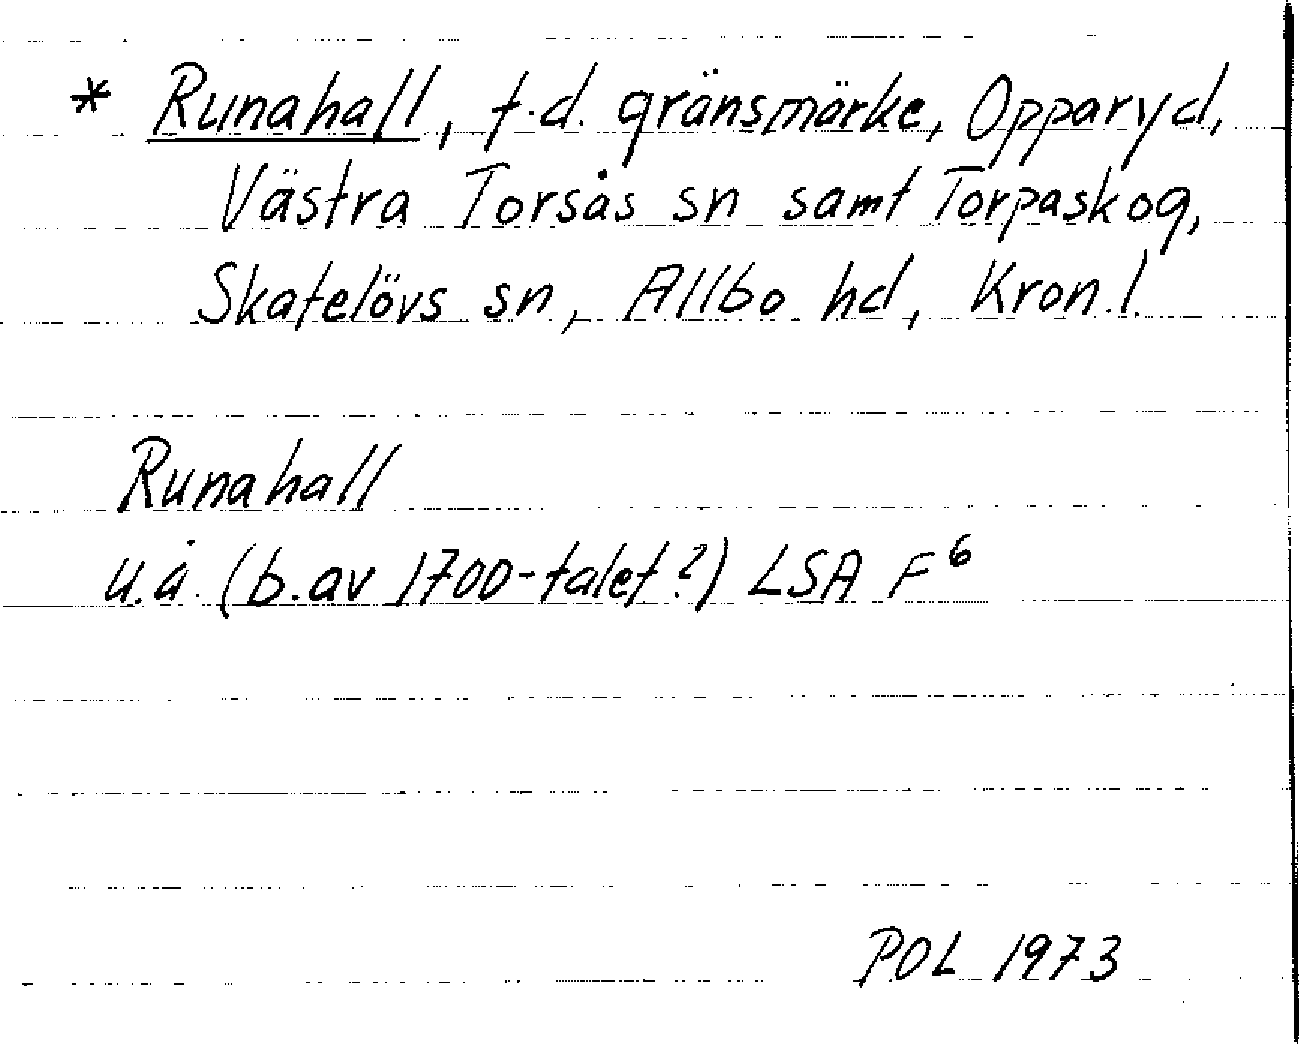 * Runahall, f.d. gränsmärke, Opparyd,
Västra Torsås sn samt Torpaskog,
Skatelövs sn, Allbo hd, Kron. l.
Runahall
u.å. (b. av 1700-talet?) LSA F⁶
POL 1973